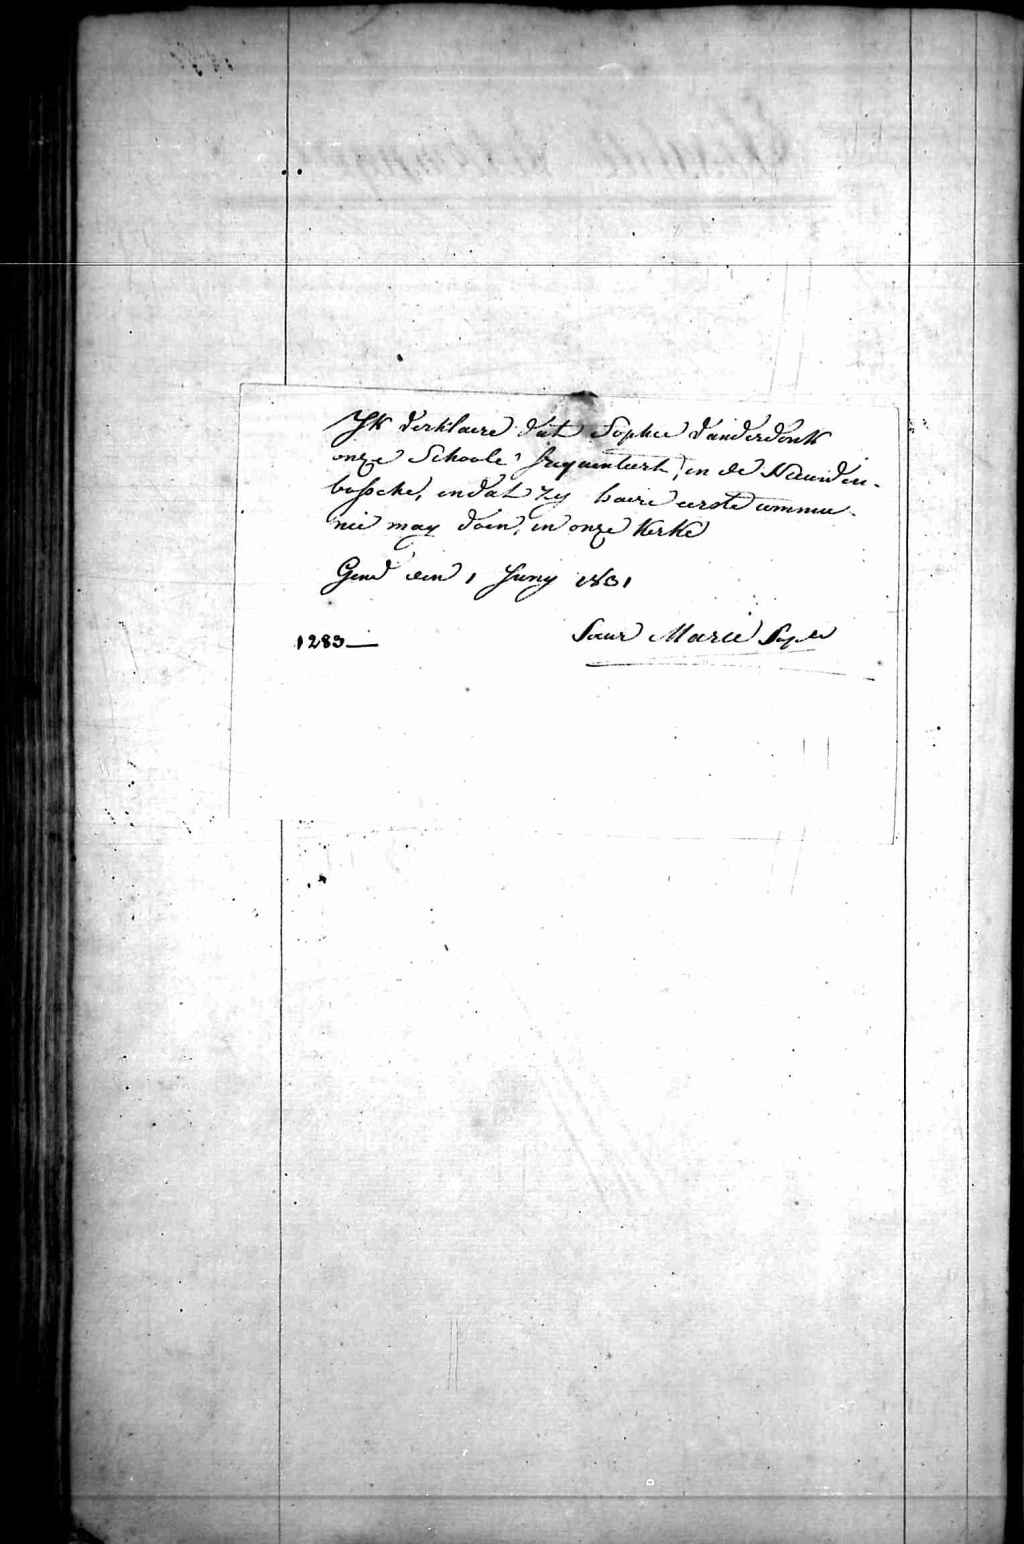 Ik verklaere dat Sophie Vanderdonk
onze Schoole frequenteert, in de Nieuwen-
bossche, en dat zy haere eerste commu-
nie mag doen, in onze kerke
Gend den 1 Juny 1831
1283
Sœur Marie